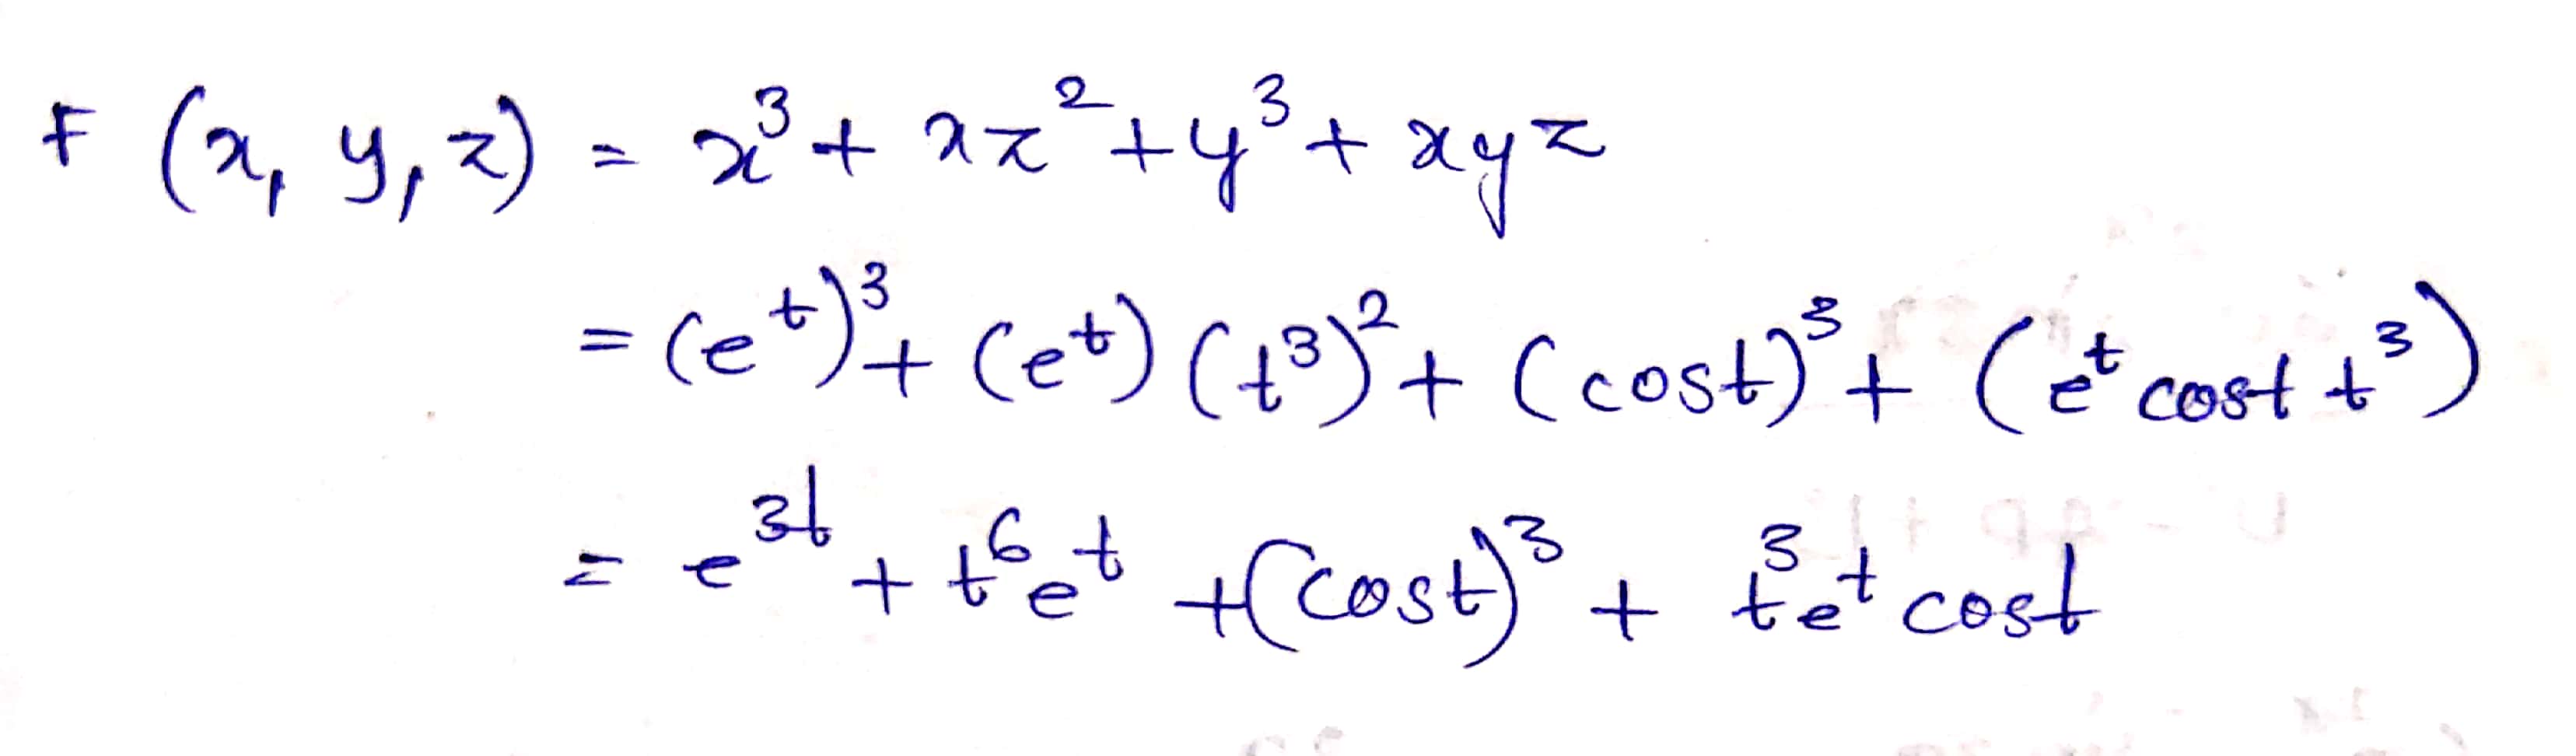 F (x, y, z) = x³ + xz² + y³ + xyz
= (e^t)³ + (e^t) (t³)² + (cost)³ + (e^t cost t³)
= e^3t + t⁶e^t + (cost)³ + t³e^t cost